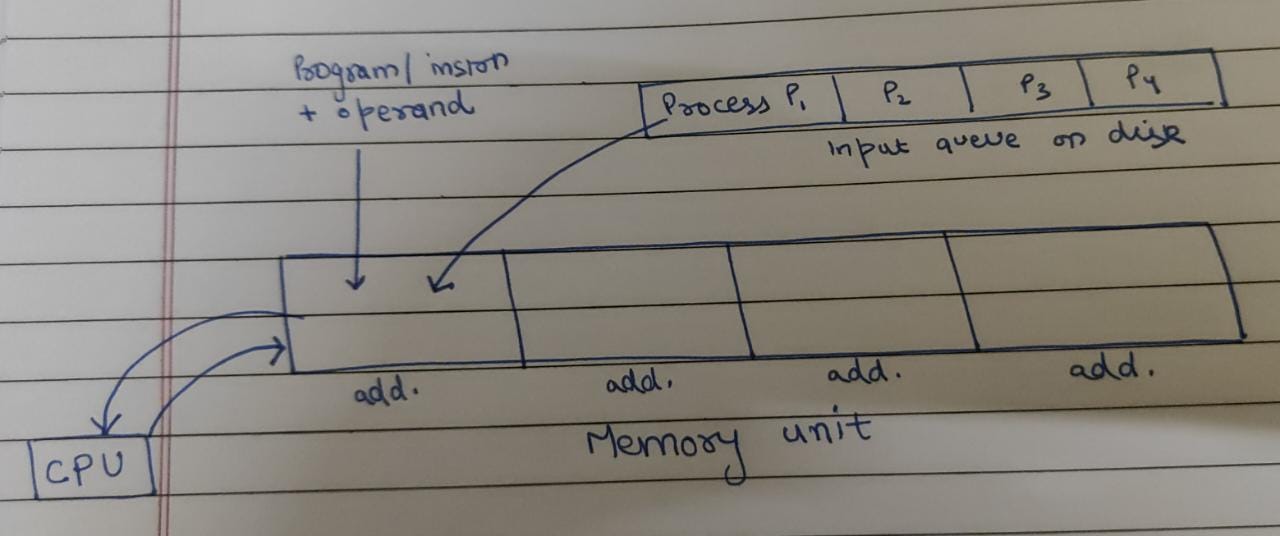 Program/ inston
+ operand
Process P1 P2 P3 P4
input queue on disk
add. add. add. add.
Memory unit
CPU